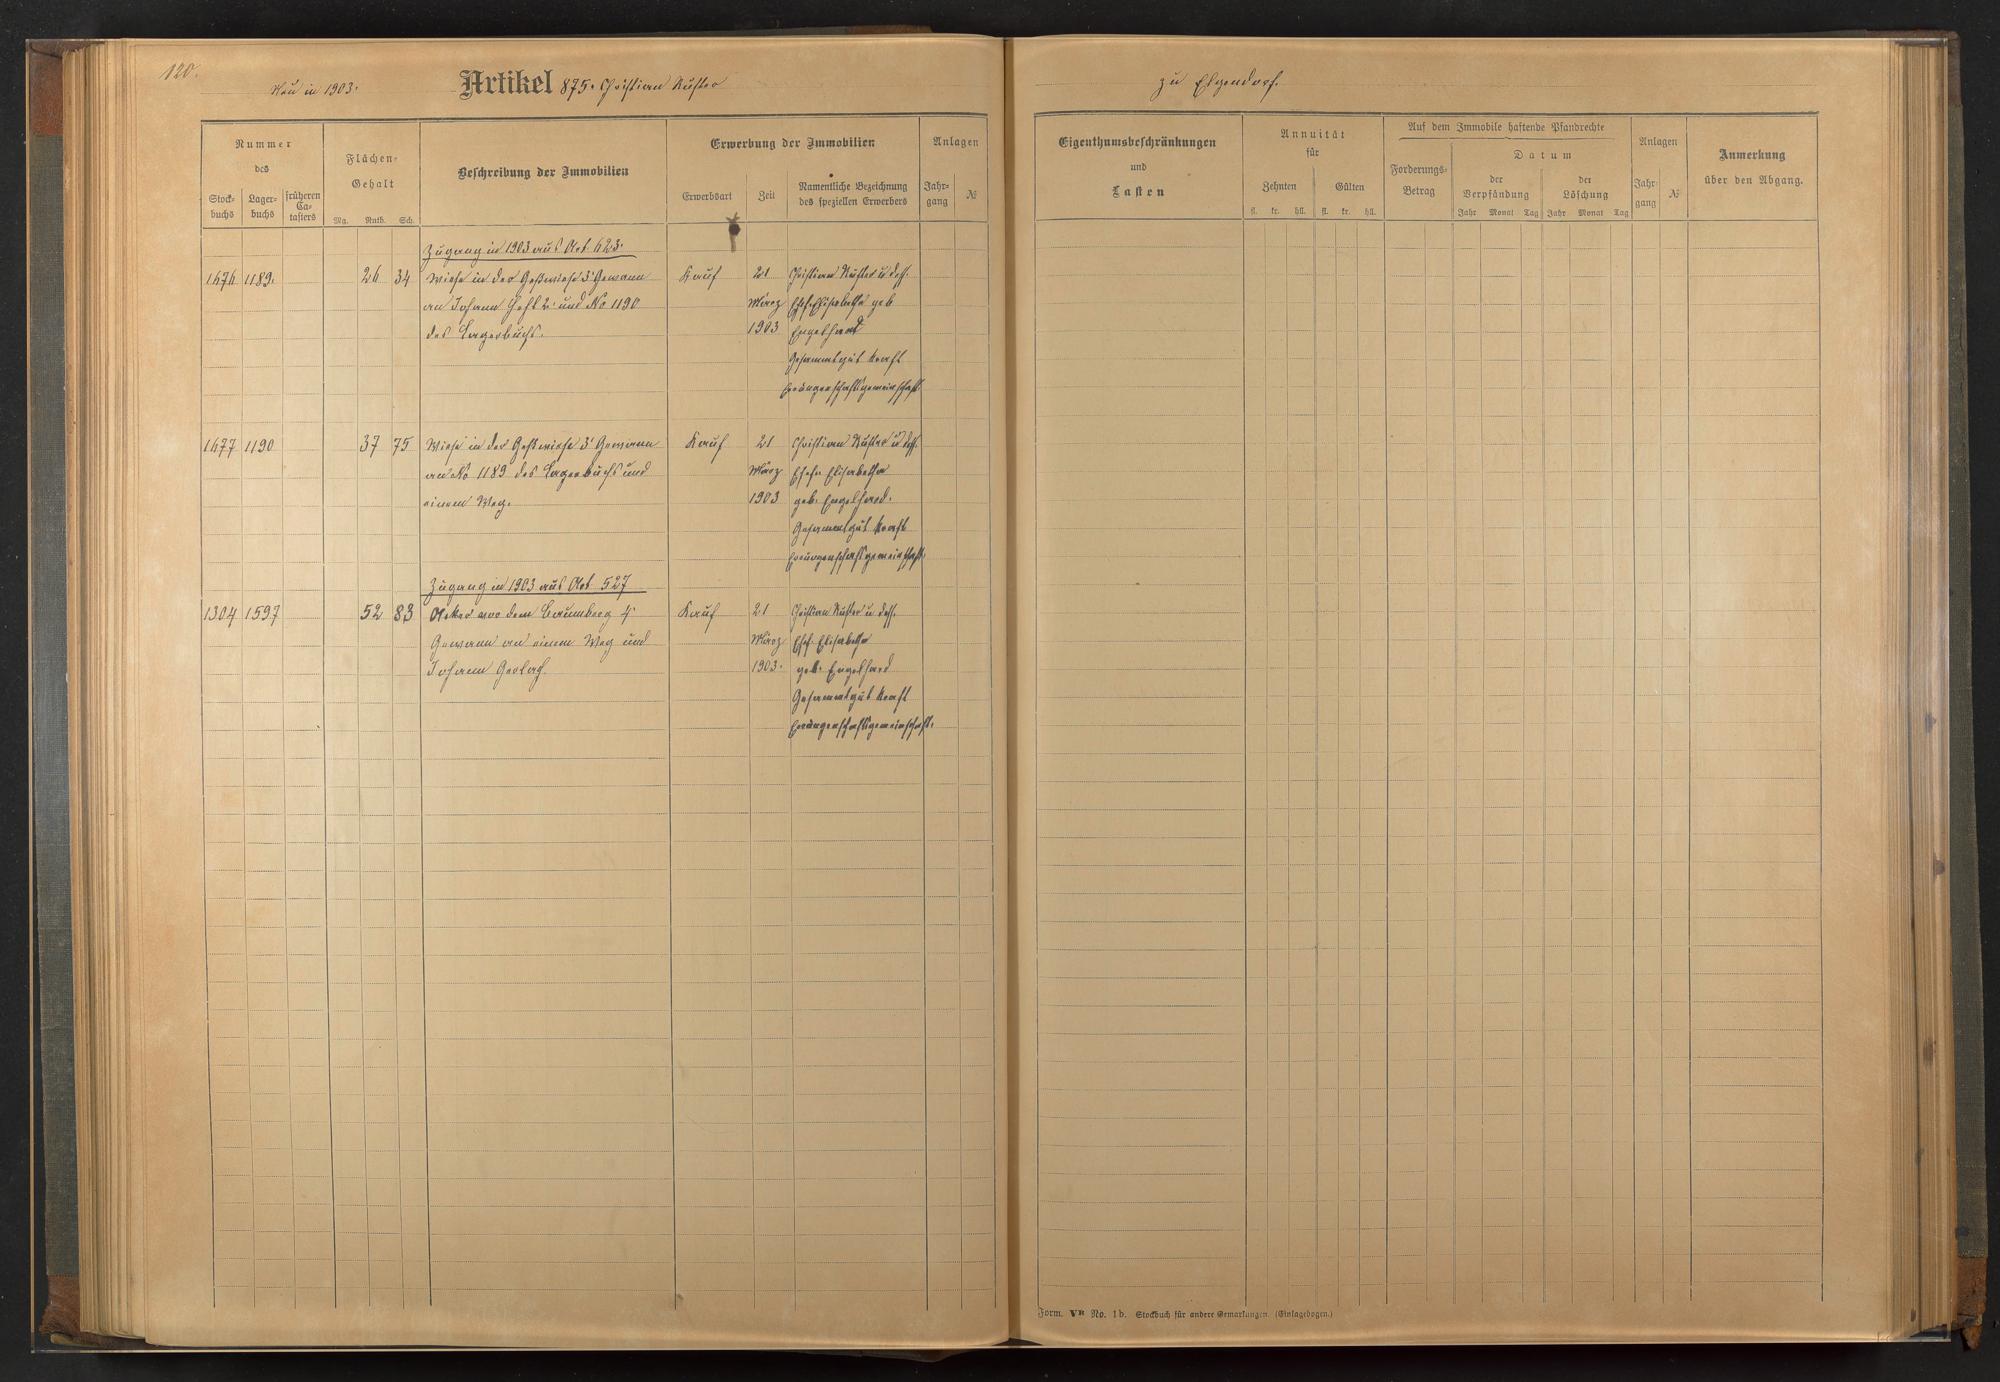 120.
Neu in 1903.
Artikel 875. Christian Kuster
Nummer
des
Stock-
buchs
Lager-
buchs
früheren
Ca-
tasters
Flächen-
Gehalt
Mg. Ruth. Sch.
Beschreibung der Immobilien
Erwerbung der Immobilien
Erwerbsart
Zeit
Namentliche Bezeichnung
des speziellen Erwerbers
Anlagen
Jahr-
gang
№
Zugang in 1903 aus Art. 623.
1676 1189. 26 34 Wiese in der 3r Gewann Kauf 21 Christian Kuster u. dess.
an Johann Hehl 2r und No 1190 März Ehefr. Elisabetha geb
des Lagerbuchs. 1903 Engelhard
Gesammtgut kraft
Errungenschaftsgemeinschaft
1677 1190 37 75 Wiese in der 3r Gewann Kauf 21 Christian Kuster u. dess.
an No 1189 des Lagerbuchs und März Ehefr. Elisabetha
einem Weg. 1903 geb. Engelhard.
Gesammtgut kraft
Errungenschaftsgemeinschaft.
Zugang in 1903 aus Art 527
1304 1597 52 83 Acker vor dem Baumberg 4r Kauf 21 Christian Kuster u. dess.
Gewann an einem Weg und März Ehefr. Elisabetha
Johann Gerlach. 1903. geb. Engelhard
Gesammtgut kraft
Errungenschaftsgemeinschaft.
zu Elgendorf.
Eigenthumsbeschränkungen
und
Lasten
Annuität
für
Zehnten
Gülten
fl. kr. hll. fl. kr. hll.
Auf dem Immobile haftende Pfandrechte
Forderungs-
Betrag
Datum
der
Verpfändung
der
Löschung
Jahr Monat Tag Jahr Monat Tag
Anlagen
Jahr-
gang
№
Anmerkung
über den Abgang.
Form. VB No. 1b. Stockbuch für andere Gemarkungen. (Einlagebogen.)